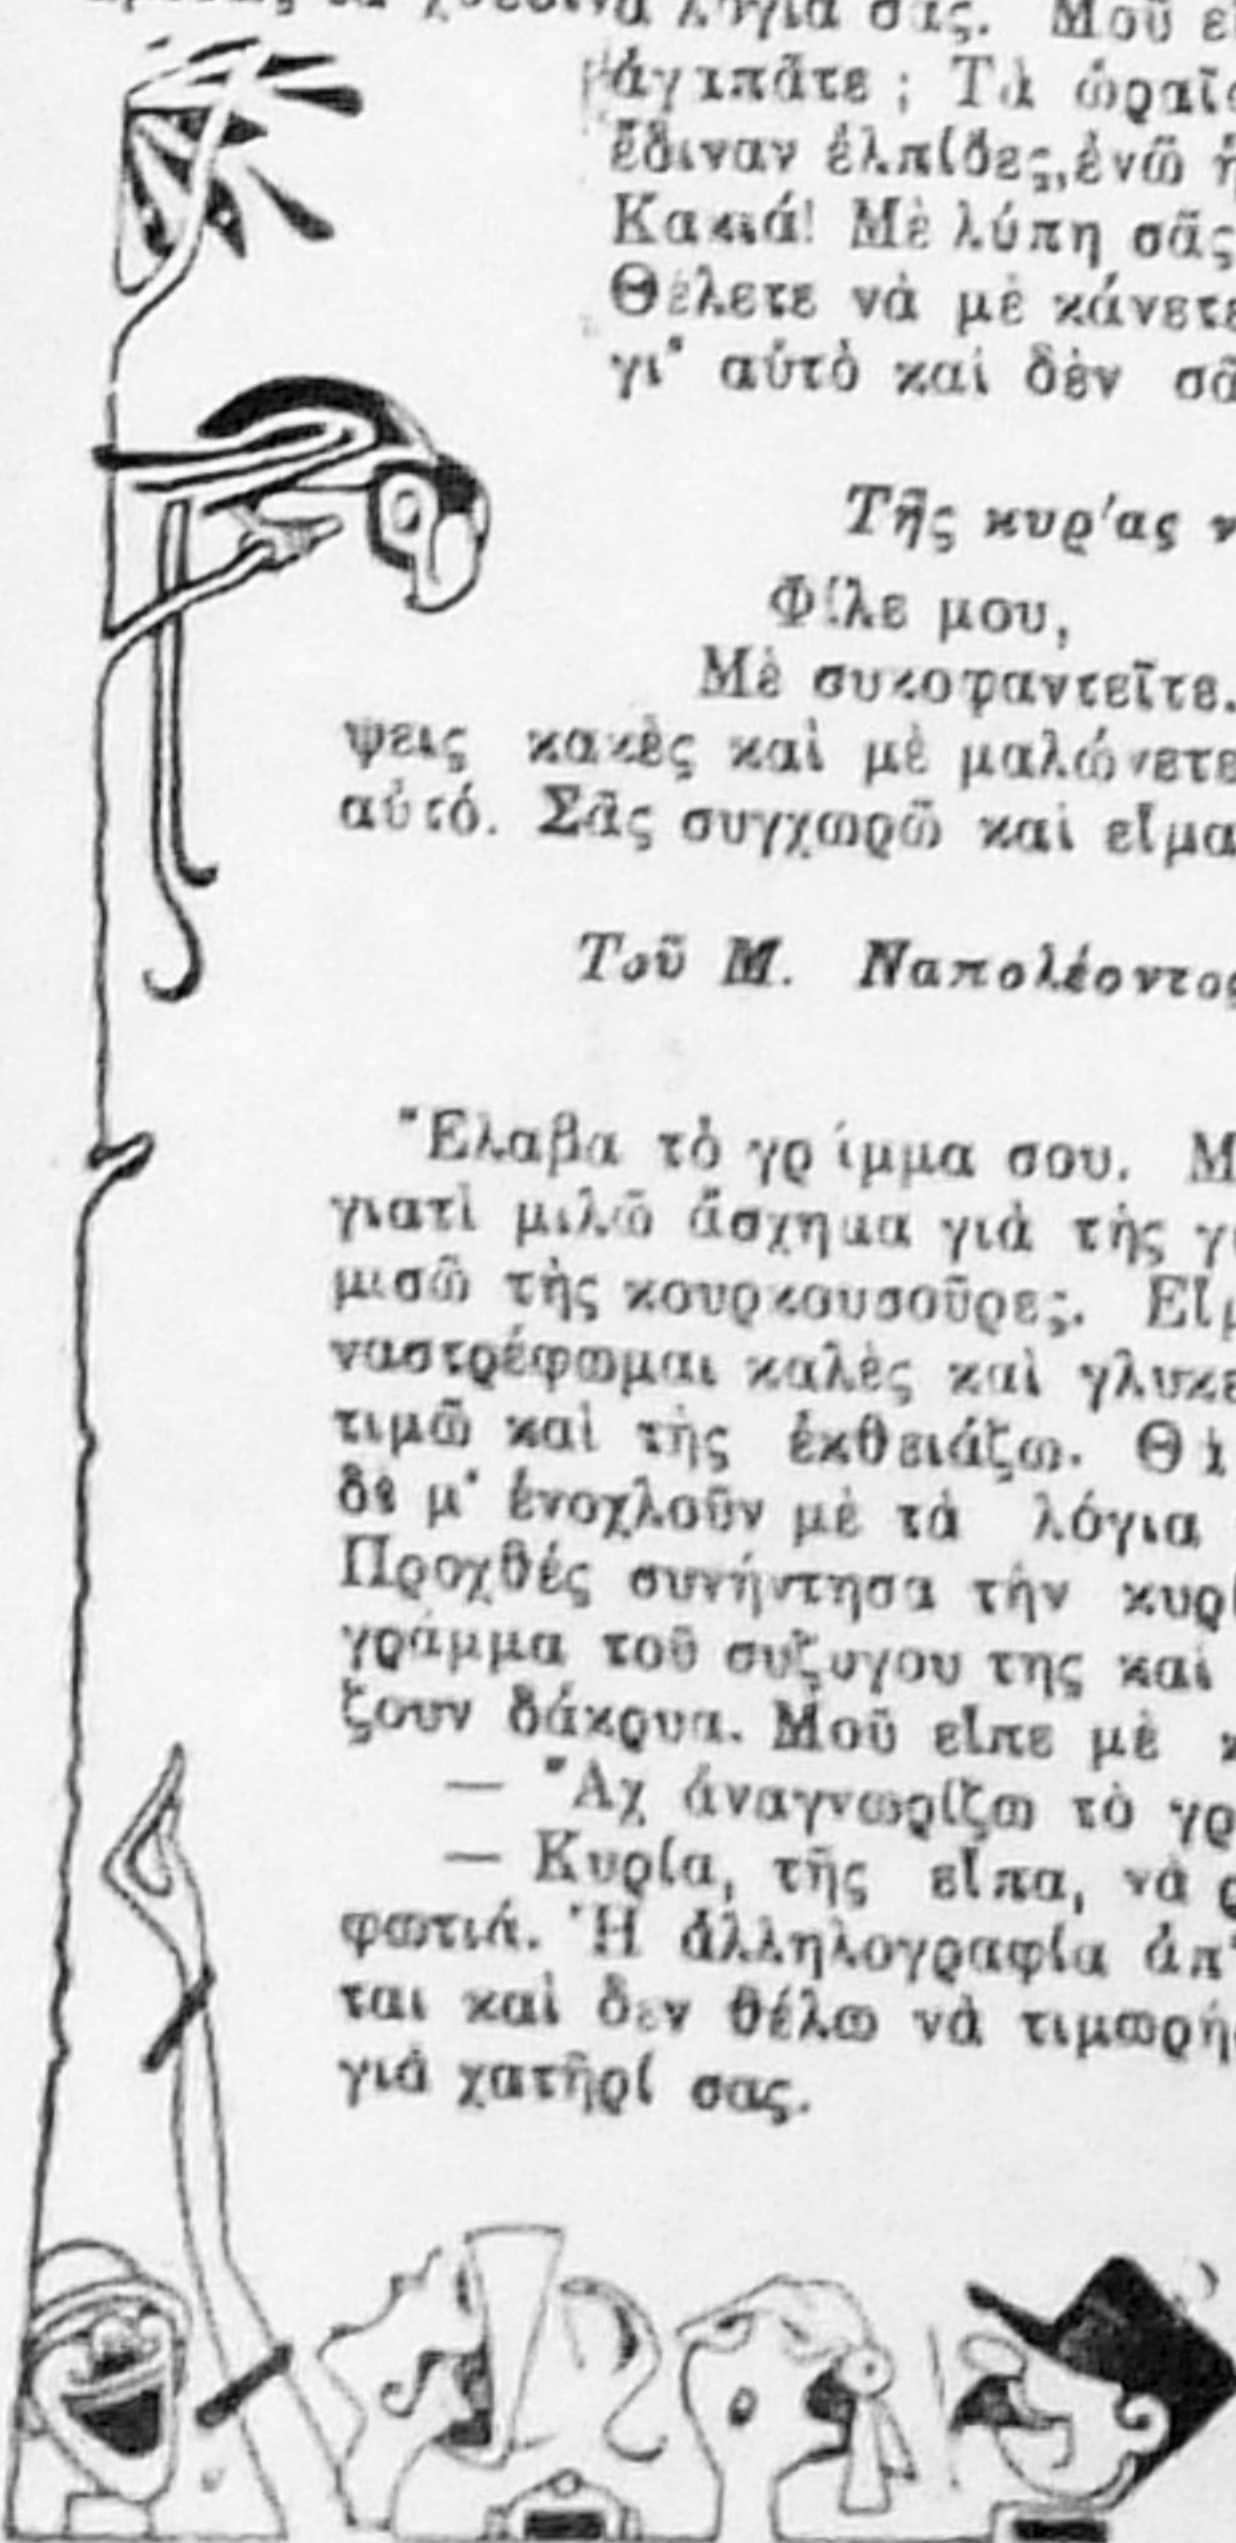 τὰ χθεσινὰ λόγια σας. Μοῦ
ἀγαπᾶτε ; Τὰ ὡραῖ
ἔδιναν ἐλπίδες, ἐνῶ ἡ
Κακιά! Μὲ λύπη σᾶς
Θέλετε νὰ μὲ κάνετε
γι' αὐτὸ καὶ δὲν σᾶ
Τῆς κυρ'ας
Φίλε μου,
Μὲ συκοφαντεῖτε.
ψεις κακὲς καὶ μὲ μαλώνετε
αὐτό. Σᾶς συγχωρῶ καὶ εἶμα
Τοῦ Μ. Ναπολέοντος
Ἔλαβα τὸ γράμμα σου. Μ
γιατὶ μιλῶ ἄσχημα γιὰ τὴς γ
μισῶ τὴς κουρκουσοῦρες. Εἶμ
ναστρέφωμαι καλὲς καὶ γλυκε
τιμῶ καὶ τὴς ἐκθειάζω. Θὰ
δὲ μ' ἐνοχλοῦν μὲ τὰ λόγια
Προχθές συνήντησα τὴν κυρί
γράμμα τοῦ συζυγου της καὶ
ζουν δάκρυα. Μοῦ εἶπε μὲ
— Ἄχ ἀναγνωρίζω τὸ γρ
— Κυρία, τῆς εἶπα, νὰ ρ
φωτιά. Ἡ ἀλληλογραφία ἀπ'
ται καὶ δεν θέλω νὰ τιμωρή
γιὰ χατῆρί σας.